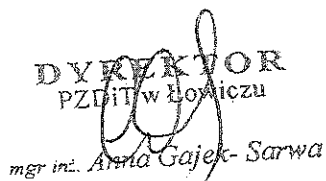 DYREKTOR
PZDiT w Łowiczu
mgr inż. Anna Gajek- Sarwa